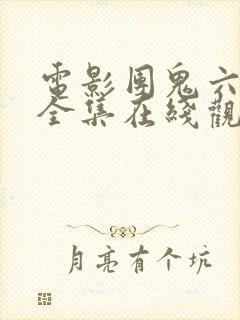 電影團鬼六
全集在綫觀
月亮有个坑